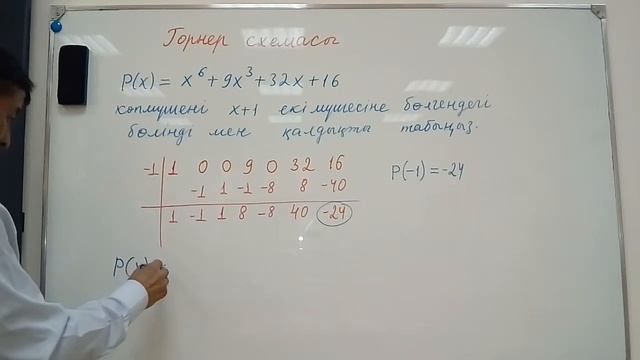 Горнер схемасы
P(x) = x⁶ + 9x³ + 32x + 16
көпмүшені x+1 екімүшесіне бөлгендегі
бөлінді мен қалдықты табыңыз.
-1 | 1 0 0 9 0 32 16
-1 1 -1 -8 8 -40
1 -1 1 8 -8 40 -24
P(-1) = -24
P(x) =